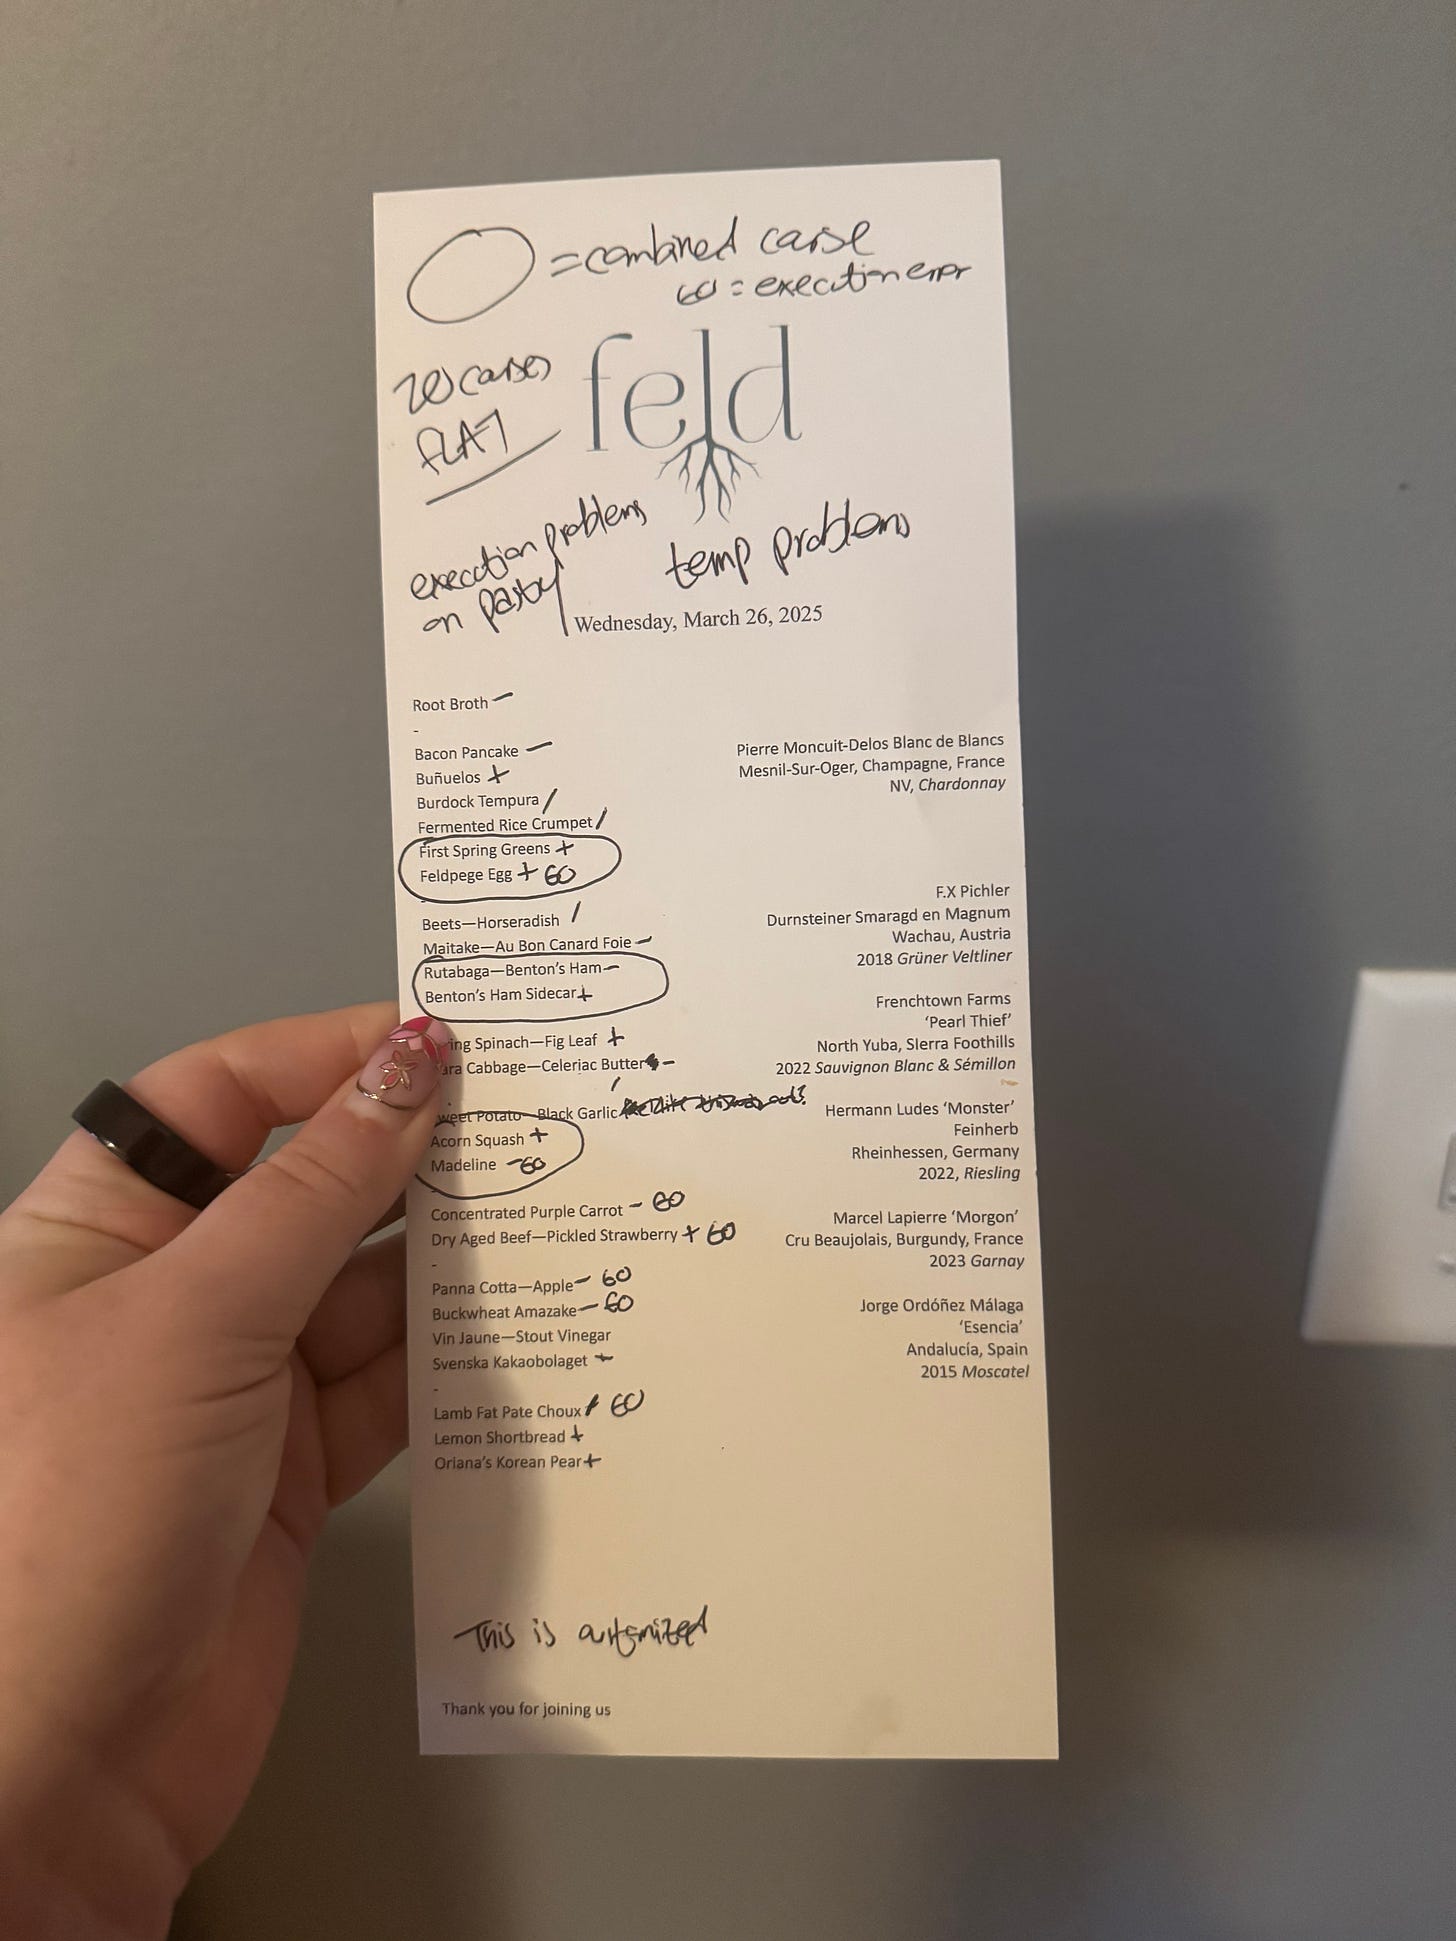 = combined carse
GO = execution error
20 carses
FLAT
feld
execution problems
on pastry
temp problems
Wednesday, March 26, 2025
Root Broth –
-
Bacon Pancake –
Buñuelos +
Burdock Tempura /
Fermented Rice Crumpet /
First Spring Greens +
Feldpege Egg + GO
Beets—Horseradish /
Maitake—Au Bon Canard Foie –
Rutabaga—Benton's Ham –
Benton's Ham Sidecar +
ing Spinach—Fig Leaf +
ara Cabbage—Celeriac Butter –
/
weet Potato—Black Garlic
Acorn Squash +
Madeline – GO
Concentrated Purple Carrot – GO
Dry Aged Beef—Pickled Strawberry + GO
-
Panna Cotta—Apple – GO
Buckwheat Amazake – GO
Vin Jaune—Stout Vinegar
Svenska Kakaobolaget +
-
Lamb Fat Pate Choux / GO
Lemon Shortbread +
Oriana's Korean Pear +
Pierre Moncuit-Delos Blanc de Blancs
Mesnil-Sur-Oger, Champagne, France
NV, Chardonnay
F.X Pichler
Durnsteiner Smaragd en Magnum
Wachau, Austria
2018 Grüner Veltliner
Frenchtown Farms
'Pearl Thief'
North Yuba, SIerra Foothills
2022 Sauvignon Blanc & Sémillon
Hermann Ludes 'Monster'
Feinherb
Rheinhessen, Germany
2022, Riesling
Marcel Lapierre 'Morgon'
Cru Beaujolais, Burgundy, France
2023 Gamay
Jorge Ordóñez Málaga
'Esencia'
Andalucía, Spain
2015 Moscatel
This is customized
Thank you for joining us